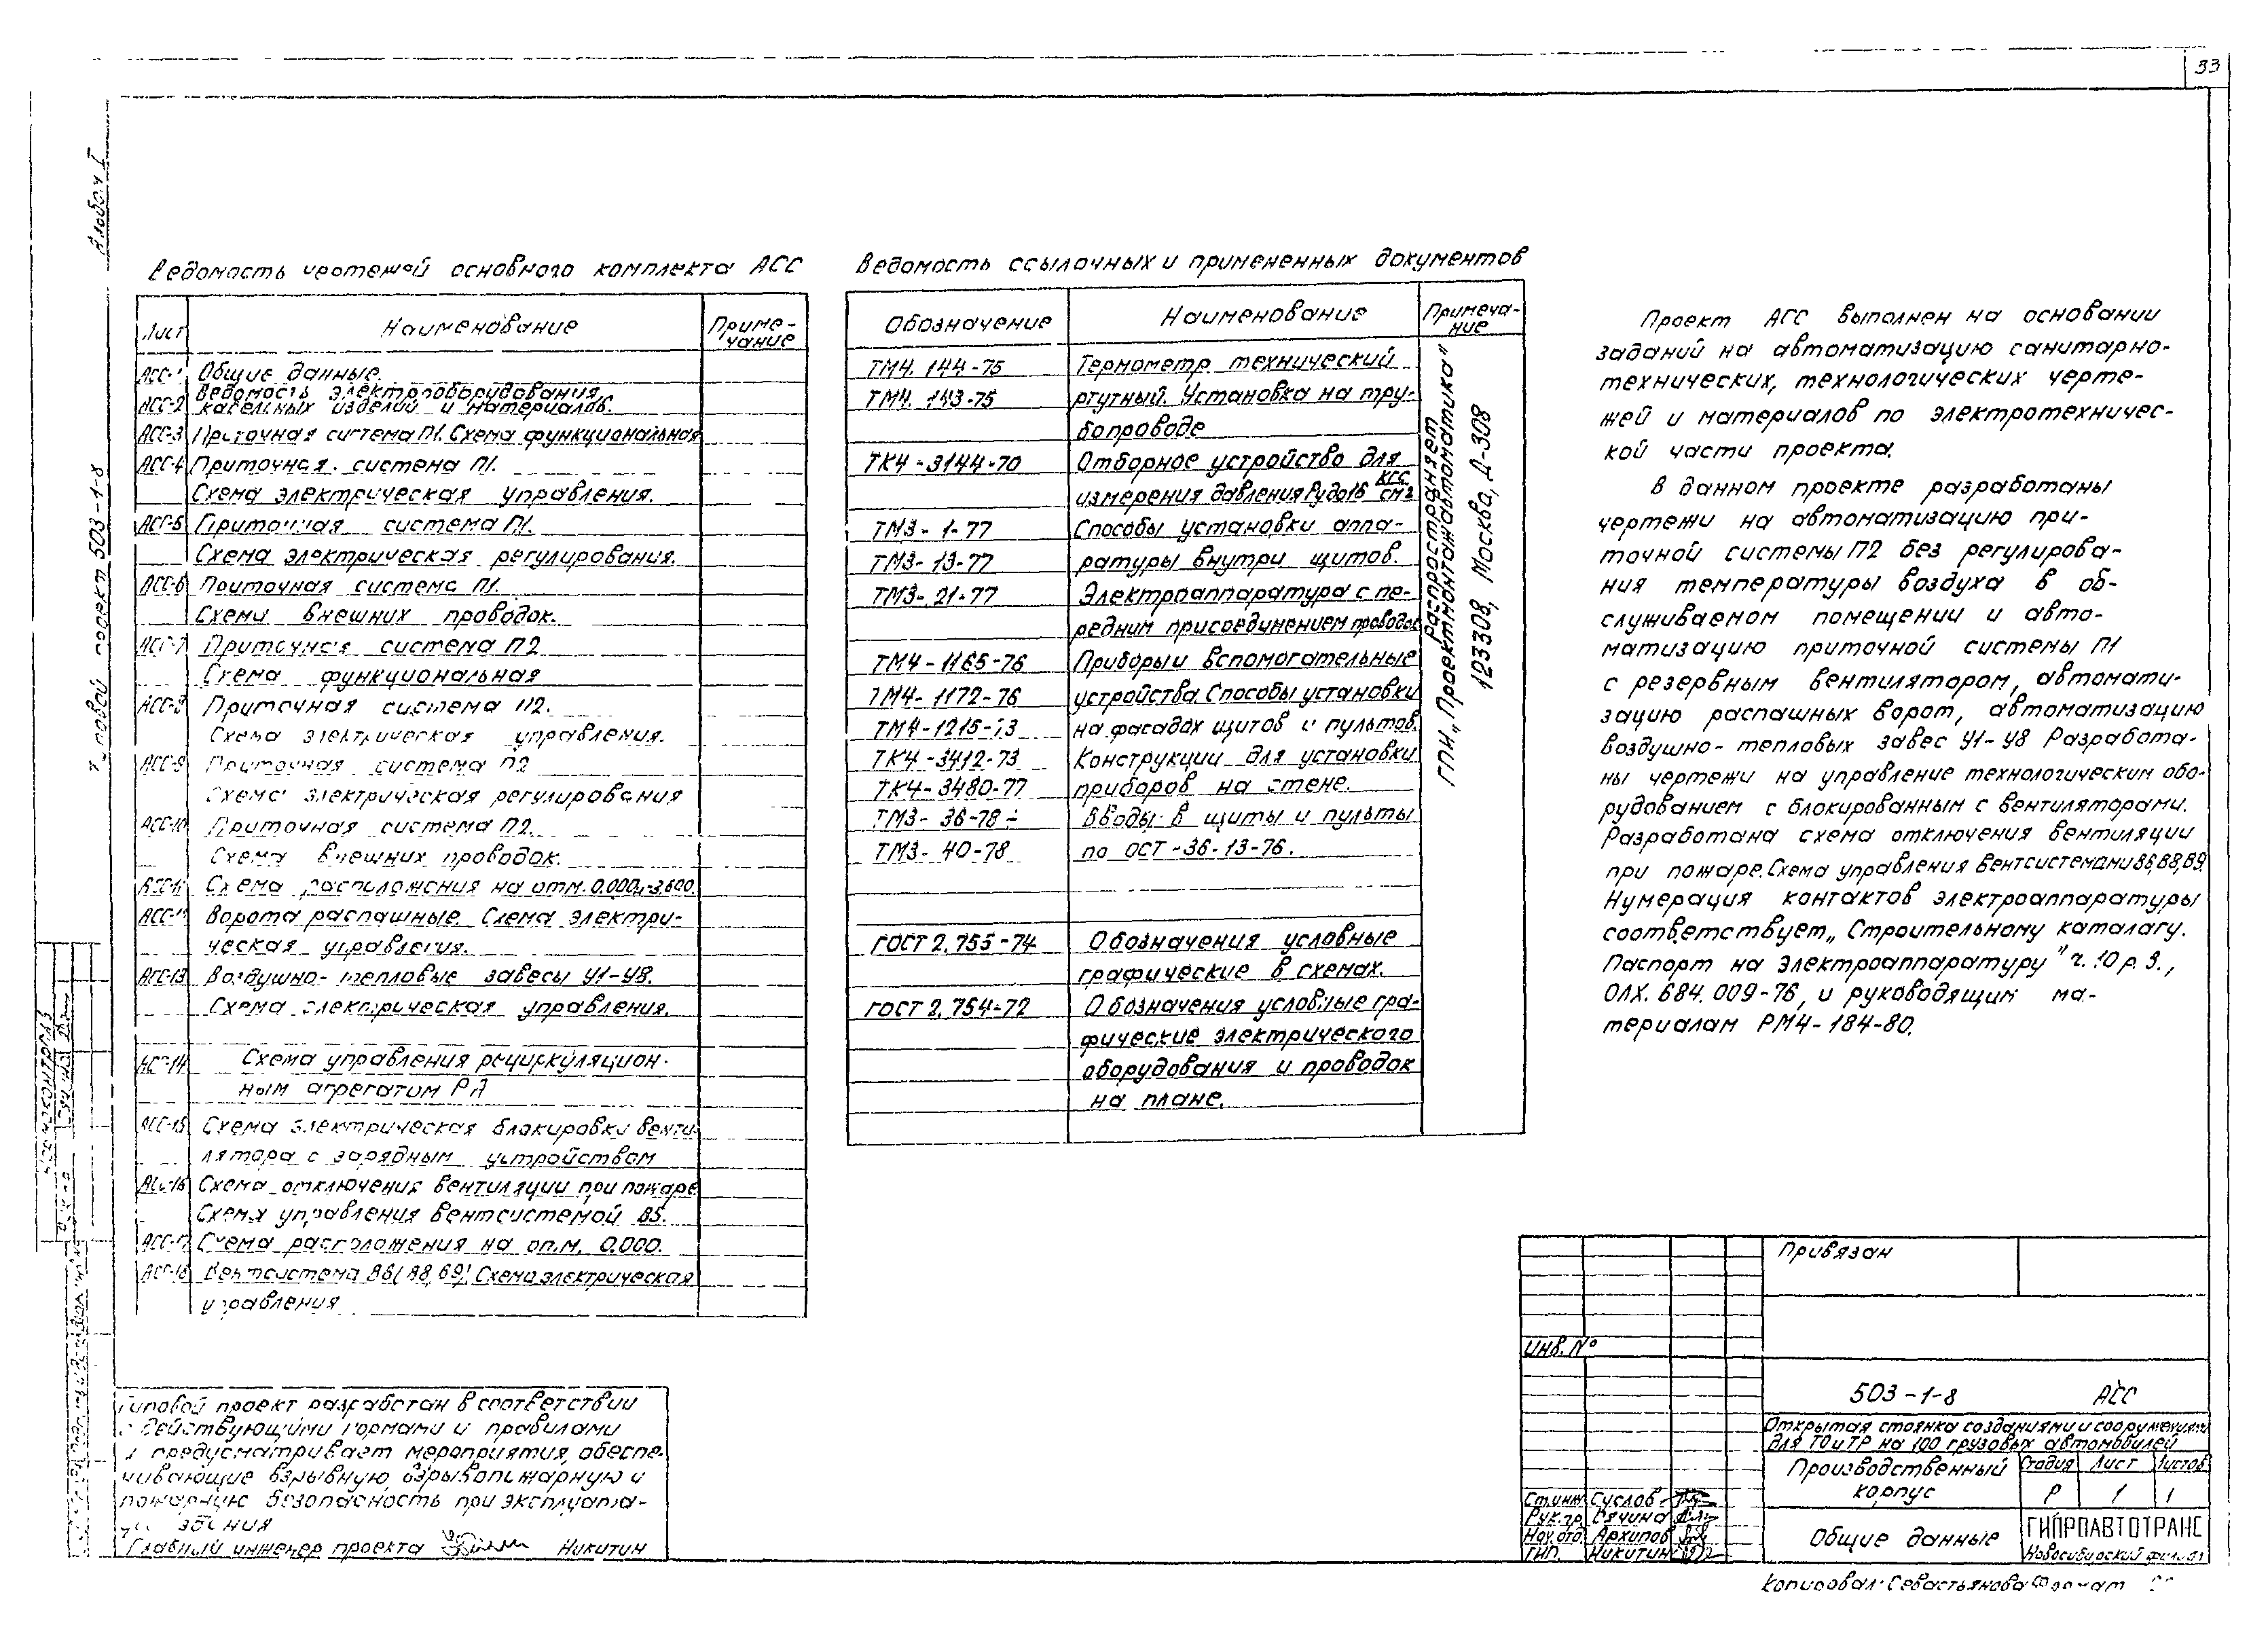 33
Альбом I
Типовой проект 503-1-8
Ведомость чертежей основного комплекта АСС
Лист Наименование Приме-
чание
АСС-1 Общие данные.
АСС-2 Ведомость электрооборудования,
кабельных изделий и материалов.
АСС-3 Приточная система П1. Схема функциональная
АСС-4 Приточная система П1.
Схема электрическая управления.
АСС-5 Приточная система П1.
Схема электрическая регулирования.
АСС-6 Приточная система П1.
Схема внешних проводок.
АСС-7 Приточная система П2
Схема функциональная
АСС-8 Приточная система П2.
Схема электрическая управления.
АСС-9 Приточная система П2
Схема электрическая регулирования
АСС-10 Приточная система П2.
Схема внешних проводок.
АСС-11 Схема расположения на отм. 0.000 и -3.600.
АСС-12 Ворота распашные. Схема электри-
ческая управления.
АСС-13 Воздушно-тепловые завесы У1-У8.
Схема электрическая управления.
АСС-14 Схема управления рециркуляцион-
ным агрегатом РА
АСС-15 Схема электрическая блокировки венти-
лятора с зарядным устройством
АСС-16 Схема отключения вентиляции при пожаре
Схема управления вентсистемой В5.
АСС-17 Схема расположения на отм. 0.000.
АСС-18 Вентсистема В6 (В8, В9). Схема электрическая
управления
Ведомость ссылочных и примененных документов
Обозначение Наименование Примеча-
ние
ТМ4. 144-75 Термометр технический
ТМ4. 143-75 ртутный. Установка на тру-
бопроводе
ТК4-3144-70 Отборное устройство для
измерения давления Ру до 16 кгс/см2
ТМ3-1-77 Способы установки аппа-
ТМ3-13-77 ратуры внутри щитов.
ТМ3-21-77 Электроаппаратура с пе-
редним присоединением проводок
ТМ4-1165-76 Приборы и вспомогательные
ТМ4-1172-76 устройства. Способы установки
ТМ4-1215-73 на фасадах щитов и пультов.
ТК4-3412-73 Конструкции для установки
ТК4-3480-77 приборов на стене.
ТМ3-36-78 ÷ Вводы в щиты и пульты
ТМ3-40-78 по ОСТ-36-13-76.
ГОСТ 2.755-74 Обозначения условные
графические в схемах.
ГОСТ 2.754-72 Обозначения условные гра-
фические электрического
оборудования и проводок
на плане.
Распространяет
ГПИ „Проектмонтажавтоматика"
123308, Москва, Д-308
Проект АСС выполнен на основании
заданий на автоматизацию санитарно-
технических, технологических черте-
жей и материалов по электротехничес-
кой части проекта.
В данном проекте разработаны
чертежи на автоматизацию при-
точной системы П2 без регулирова-
ния температуры воздуха в об-
служиваемом помещении и авто-
матизацию приточной системы П1
с резервным вентилятором, автомати-
зацию распашных ворот, автоматизацию
воздушно-тепловых завес У1-У8 Разработа-
ны чертежи на управление технологическим обо-
рудованием с блокированным с вентиляторами.
Разработана схема отключения вентиляции
при пожаре. Схема управления вентсистемами В6, В8, В9.
Нумерация контактов электроаппаратуры
соответствует „Строительному каталагу.
Паспорт на электроаппаратуру" ч. 10 р. 3.,
ОЛХ. 684. 009-76, и руководящим ма-
териалам РМ4-184-80.
Типовой проект разработан в соответствии
с действующими нормами и правилами
и предусматривает мероприятия, обеспе-
чивающие взрывную, взрывопожарную и
пожарную безопасность при эксплуата-
ции здания
Главный инженер проекта Никитин
Привязан
Инв. №
503-1-8 АСС
Открытая стоянка со зданиями и сооружениями
для ТО и ТР на 100 грузовых автомобилей
Производственный
корпус
Стадия Лист Листов
Р 1 1
Ст. инж Суслов
Рук. гр.
Нач. отд Архипов
ГИП. Никитин
Общие данные
ГИПРОАВТОТРАНС
Новосибирский филиал
Копировал: Севастьянова Формат